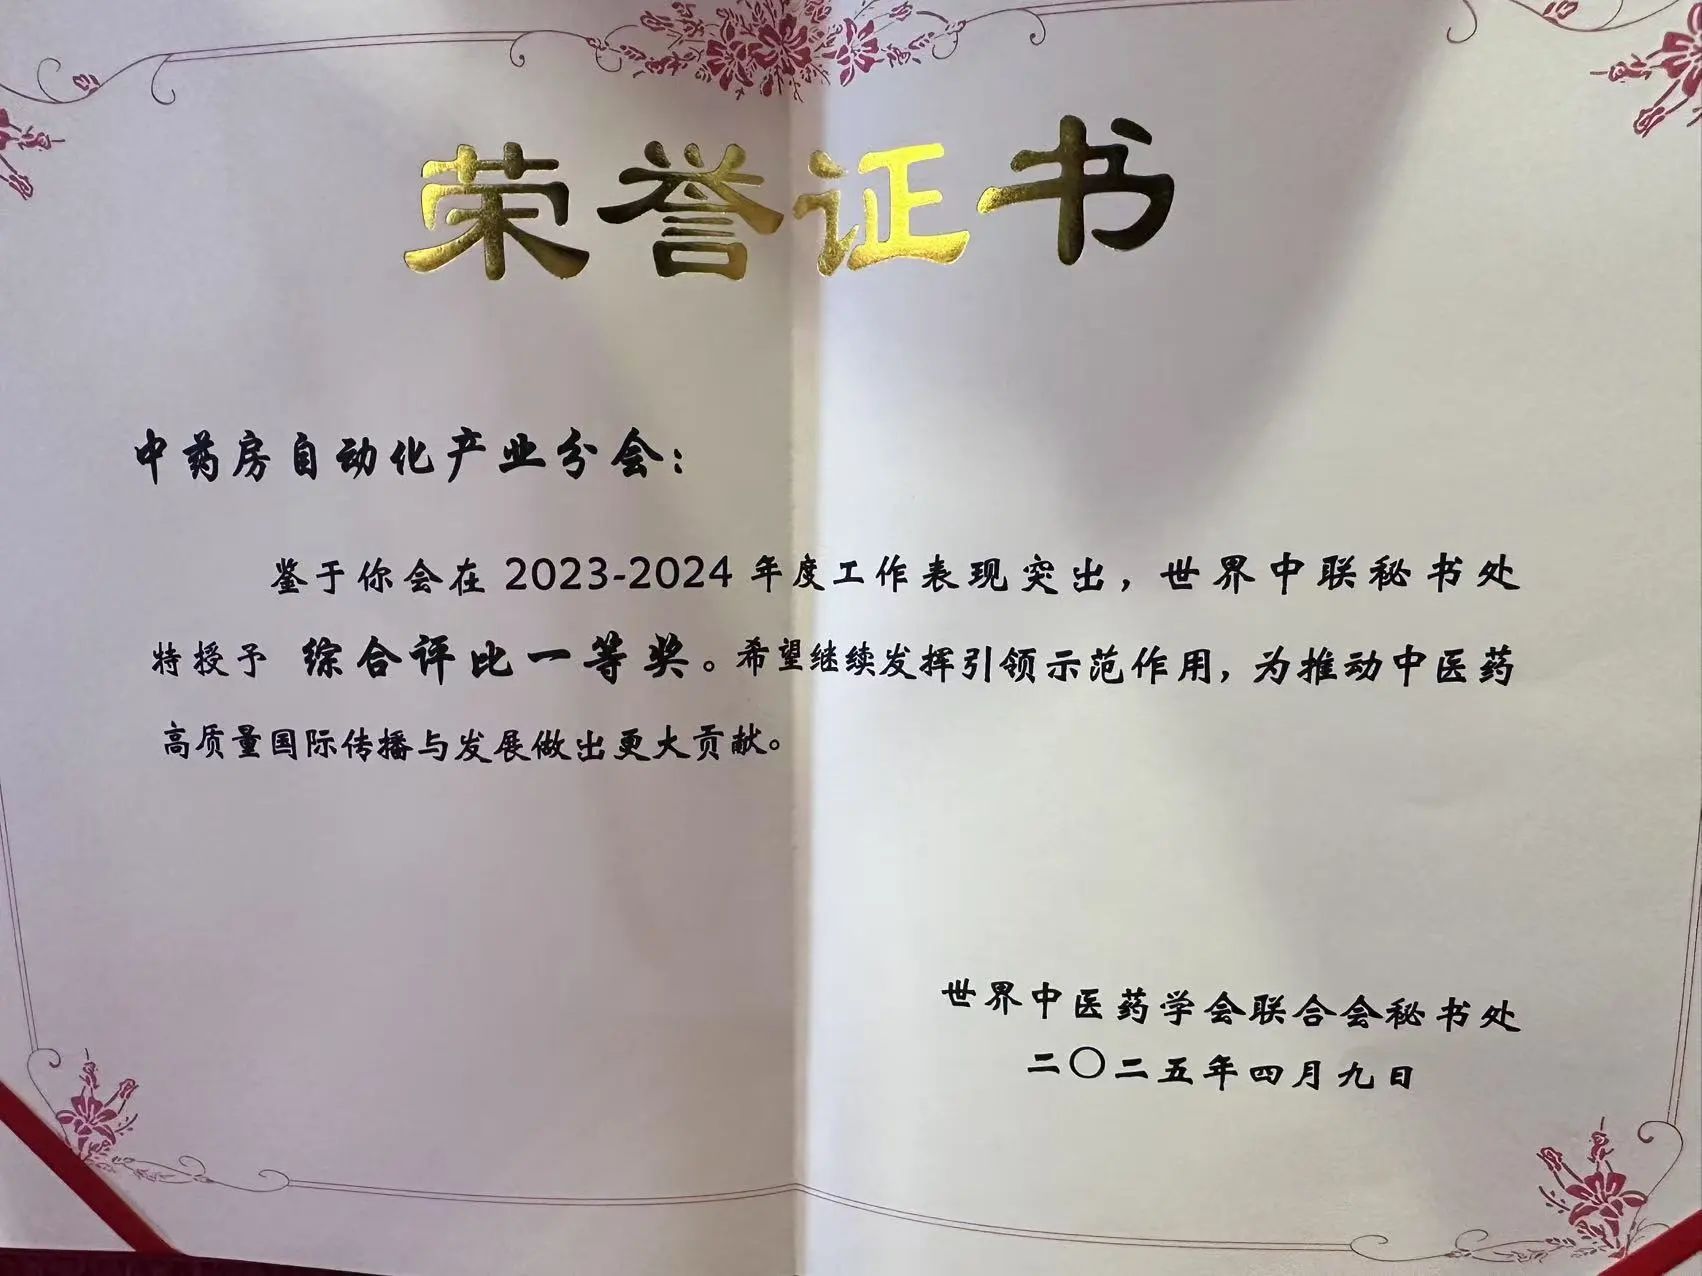 荣誉证书
中药房自动化产业分会：
鉴于你会在 2023-2024 年度工作表现突出，世界中联秘书处
特授予 综合评比一等奖。希望继续发挥引领示范作用，为推动中医药
高质量国际传播与发展做出更大贡献。
世界中医药学会联合会秘书处
二〇二五年四月九日